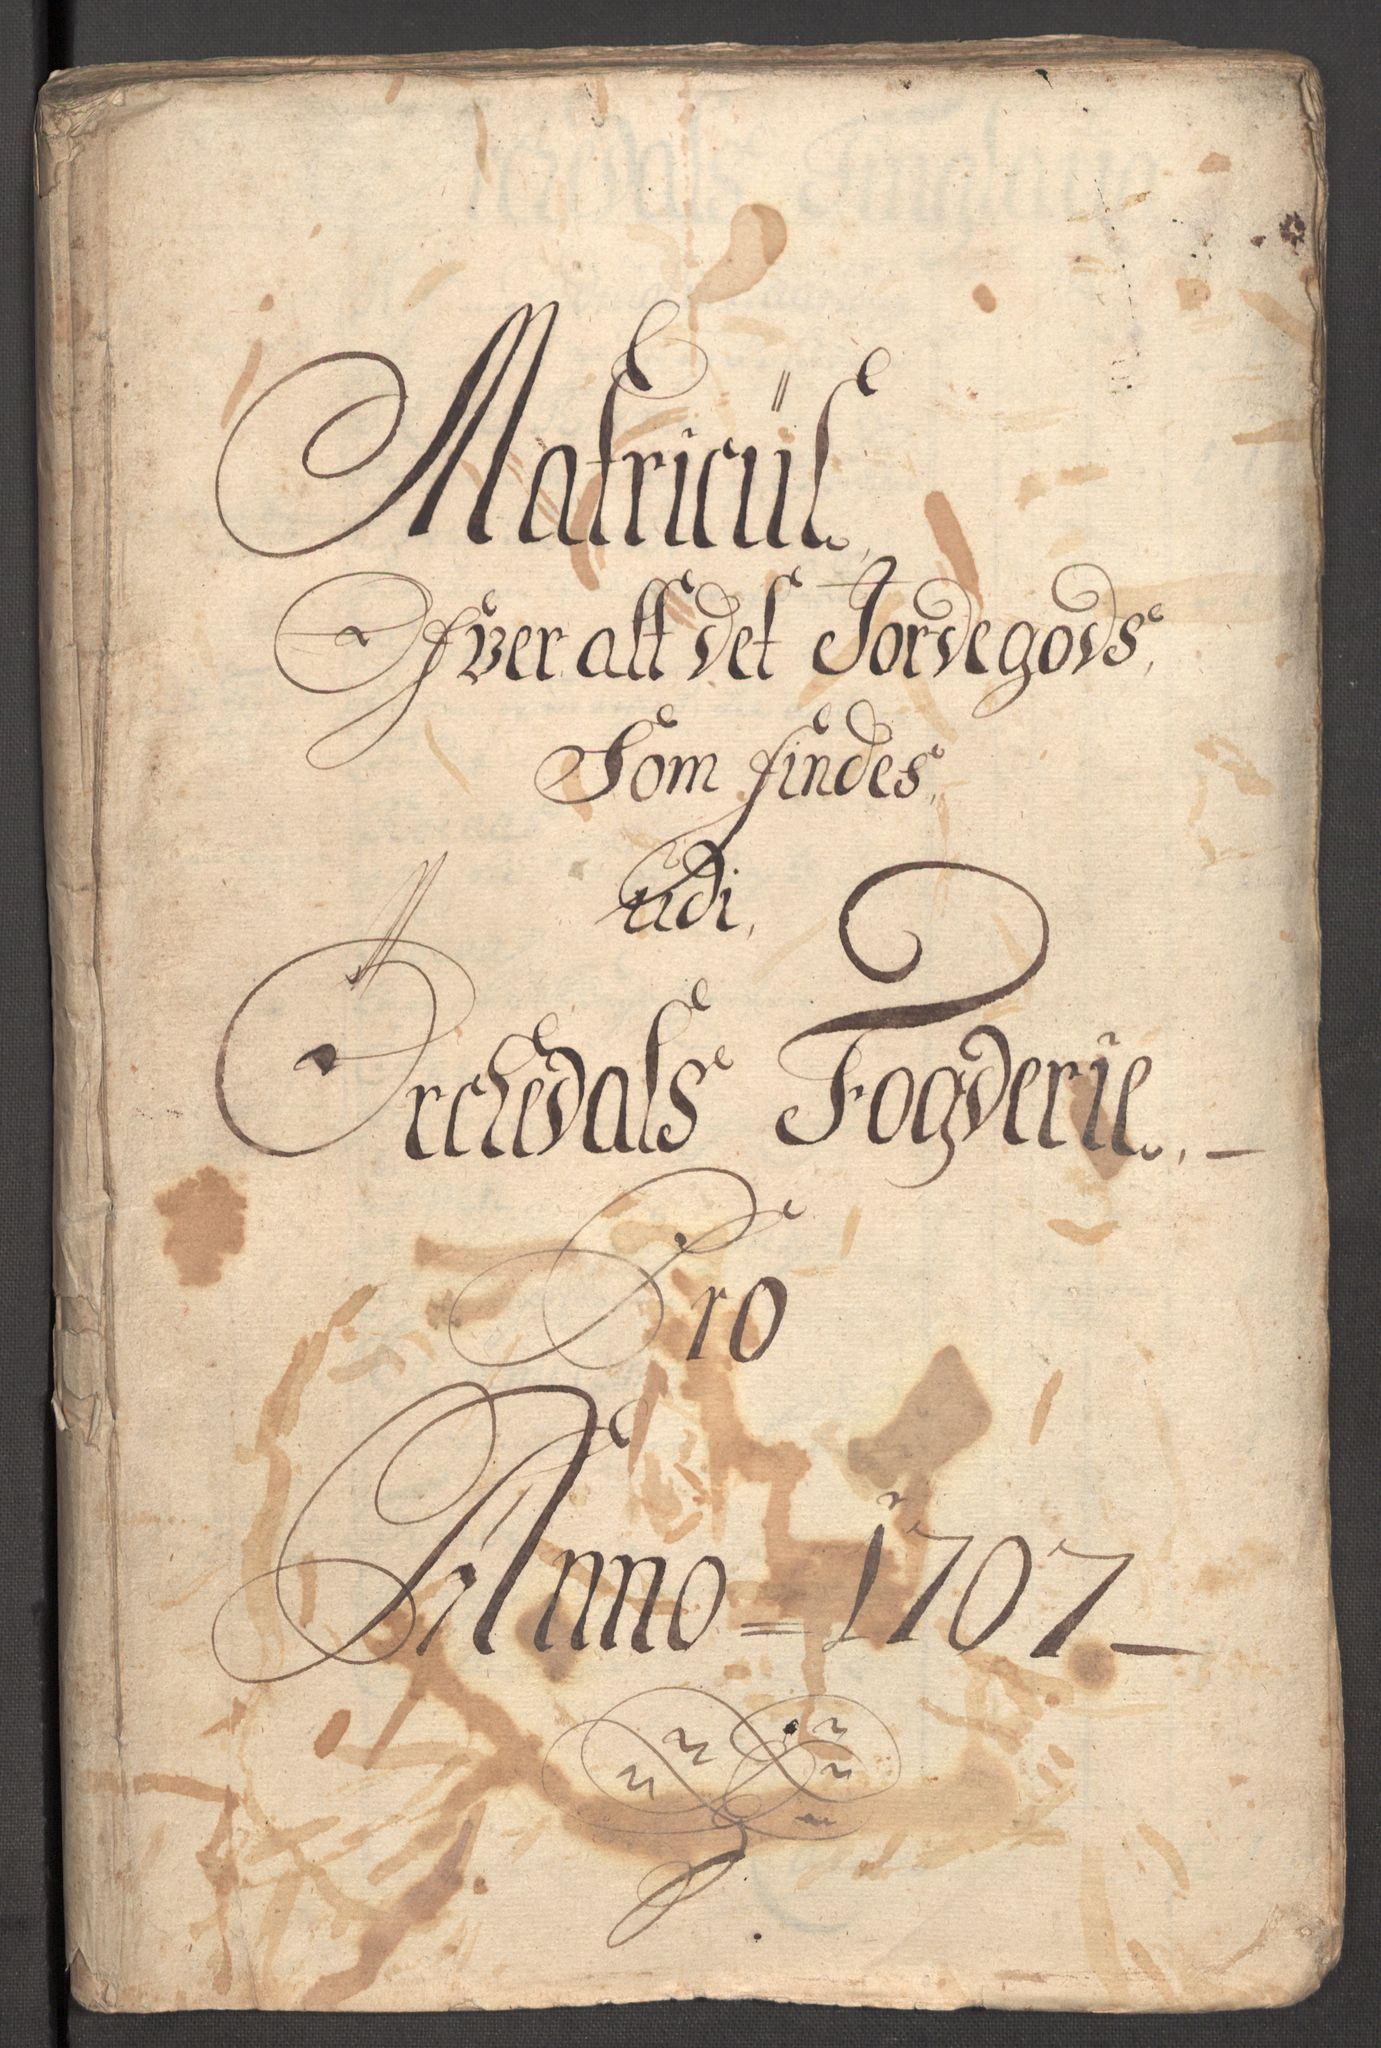 Matricul
Ofver alt det Jordegods,
Som findes,
udi,
Orchedals Fogderie. –
Pro
Anno = 1707 –